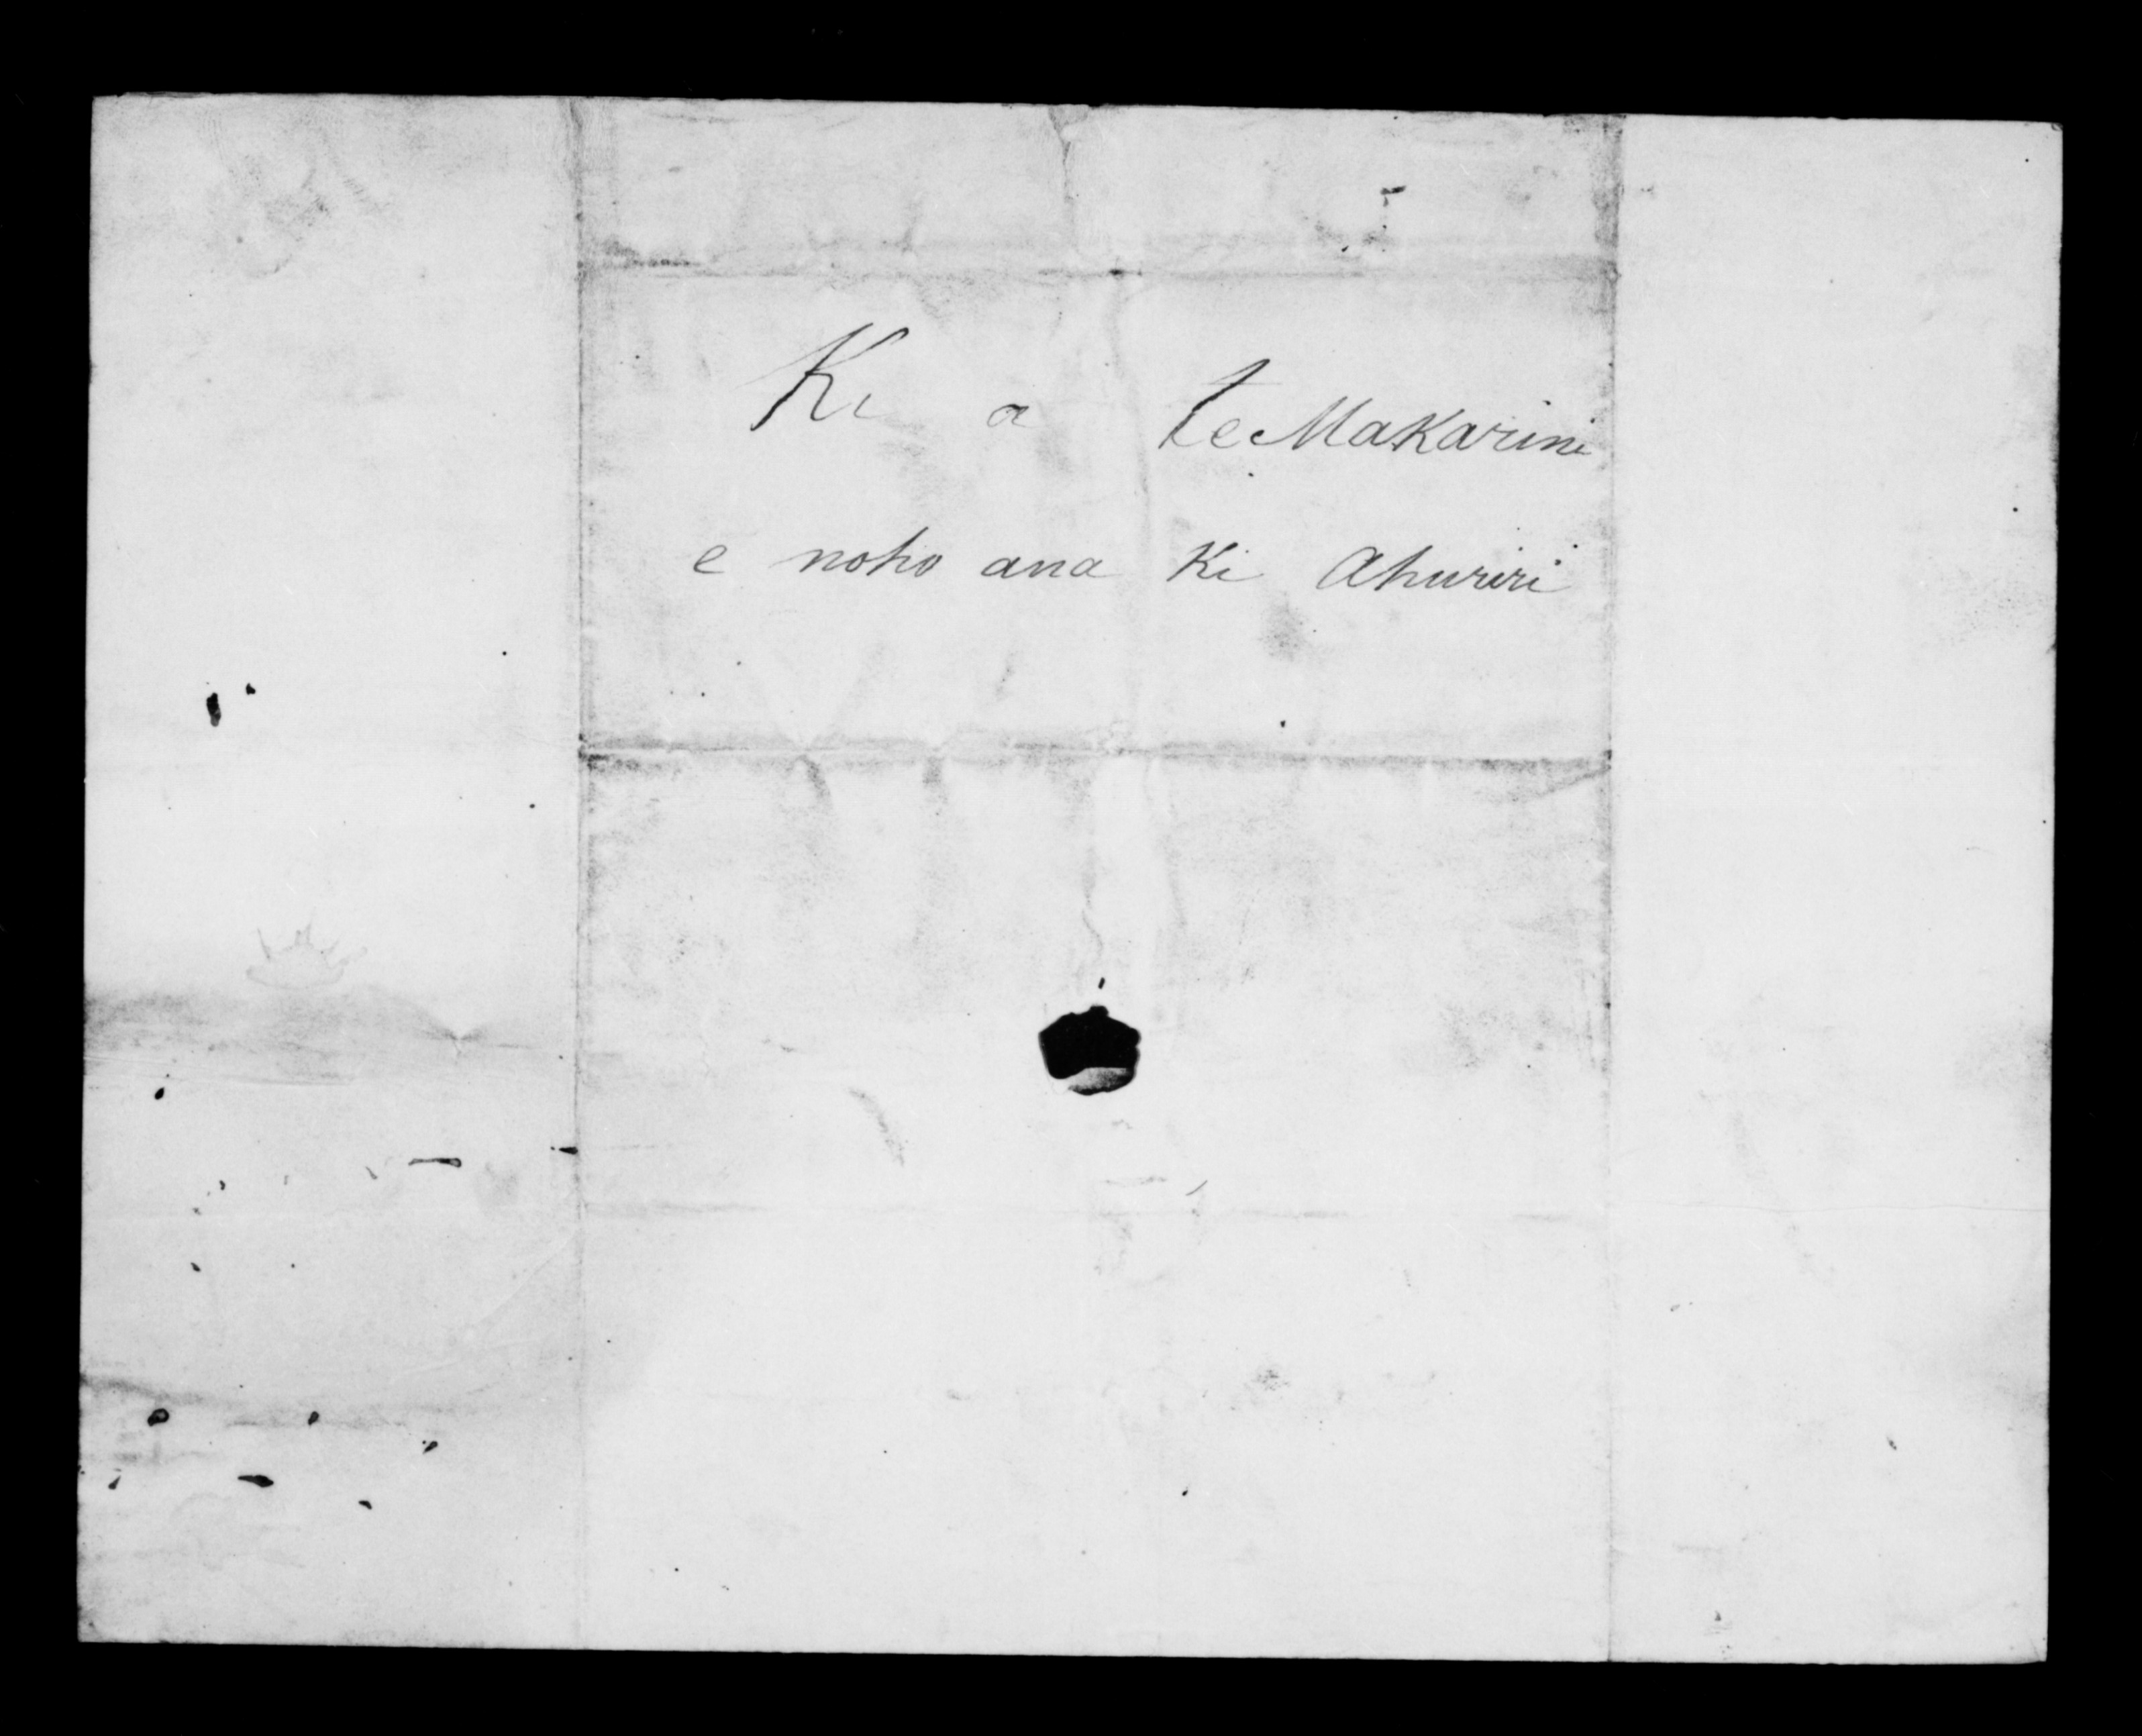 Ki a te Makarini
e noho ana Ki Ahuriri